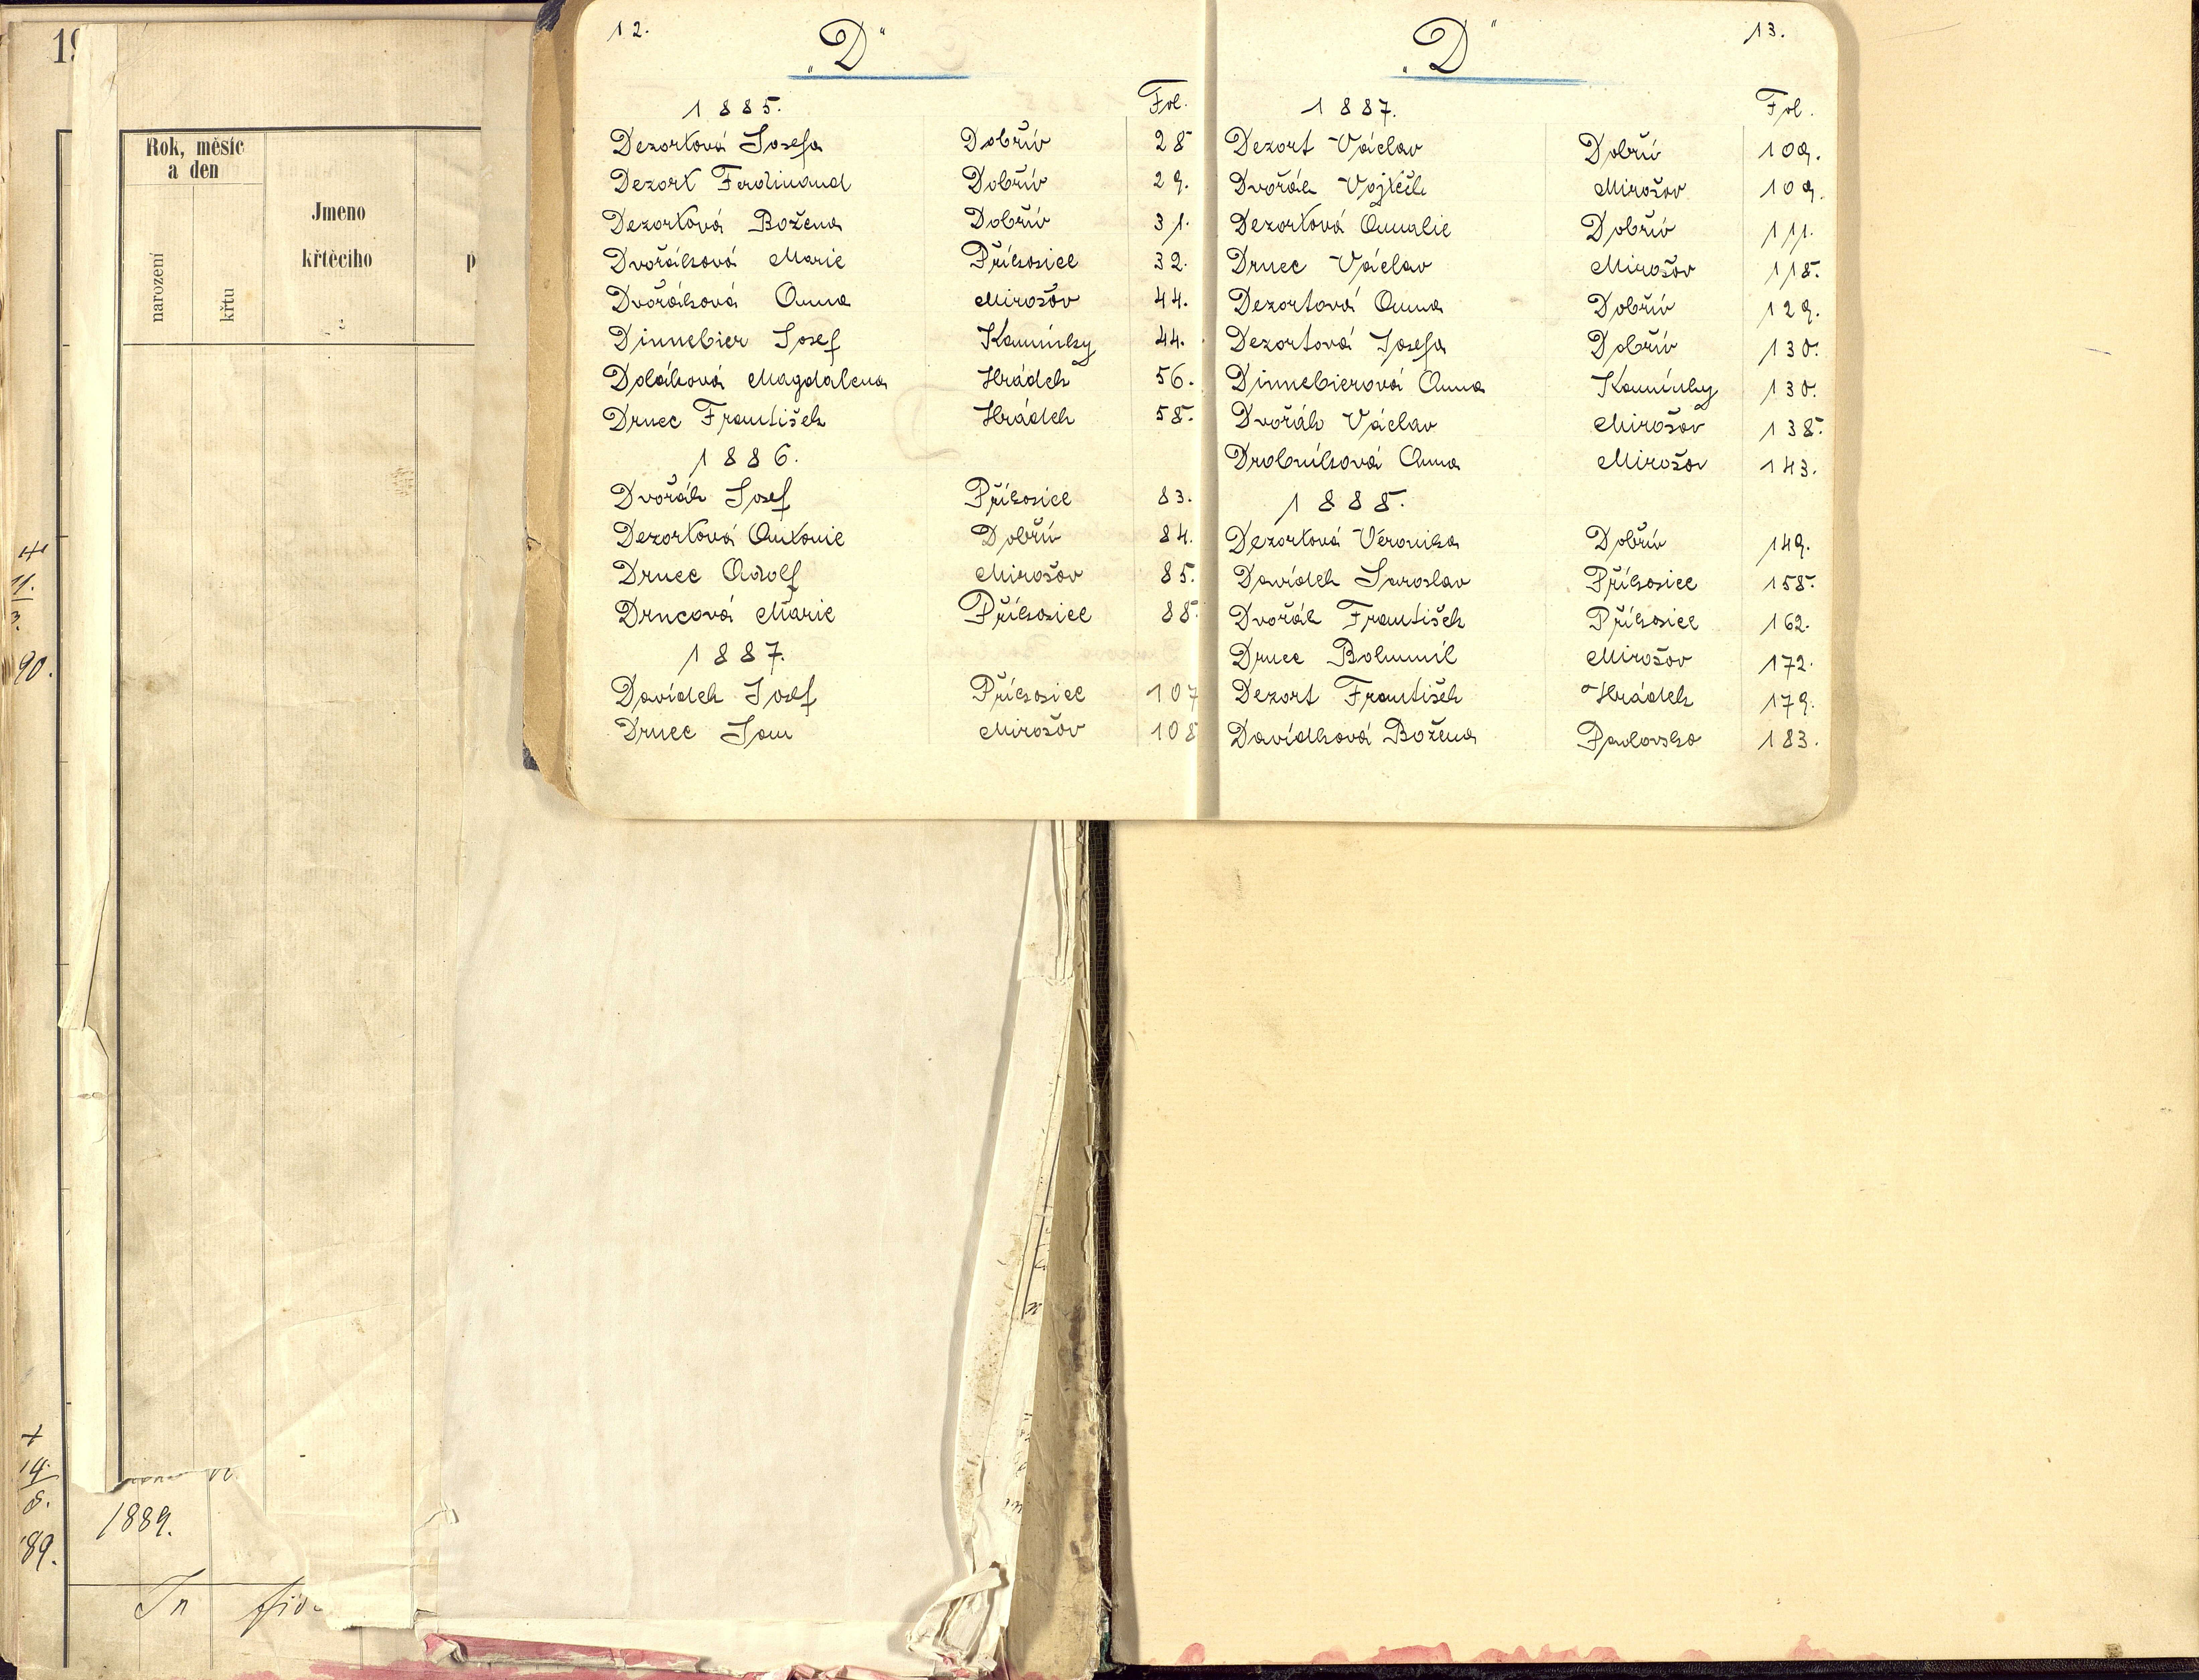 12.
„D“
1885.
Fol.
Dezortová Josefa Dobřív 28
Dezort Ferdinand Dobřív 29.
Dezortová Božena Dobřív 31.
Dvořáková Marie Příkosice 32.
Dvořáková Anna Mirošov 44.
Dinnebier Josef Kamínky 44.
Doláková Magdalena Hrádek 56.
Drnec František Hrádek 58.
1886.
Dvořák Josef Příkosice 83.
Dezortová Antonie Dobřív 84.
Drnec Adolf Mirošov 85.
Drncová Marie Příkosice 88
1887.
Davídek Josef Příkosice 107
Drnec Jan Mirošov 108
„D“
13.
1887.
Fol.
Dezort Václav Dobřív 109.
Dvořák Vojtěch Mirošov 109.
Dezortová Amalie Dobřív 111.
Drnec Václav Mirošov 118.
Dezortová Anna Dobřív 129.
Dezortová Josefa Dobřív 130.
Dinnebierová Anna Kamínky 130.
Dvořák Václav Mirošov 138.
Drobníková Anna Mirošov 143.
1888.
Dezortová Veronika Dobřív 149.
Davídek Jaroslav Příkosice 158.
Dvořák František Příkosice 162.
Drnec Bohumil Mirošov 172.
Dezort František Hrádek 179.
Davídková Božena Pavlovsko 183.
Rok, měsíc
a den
narození
křtu
Jmeno
křtěcího
2
11.
3.
90.
14.
8.
89.
1889.
In